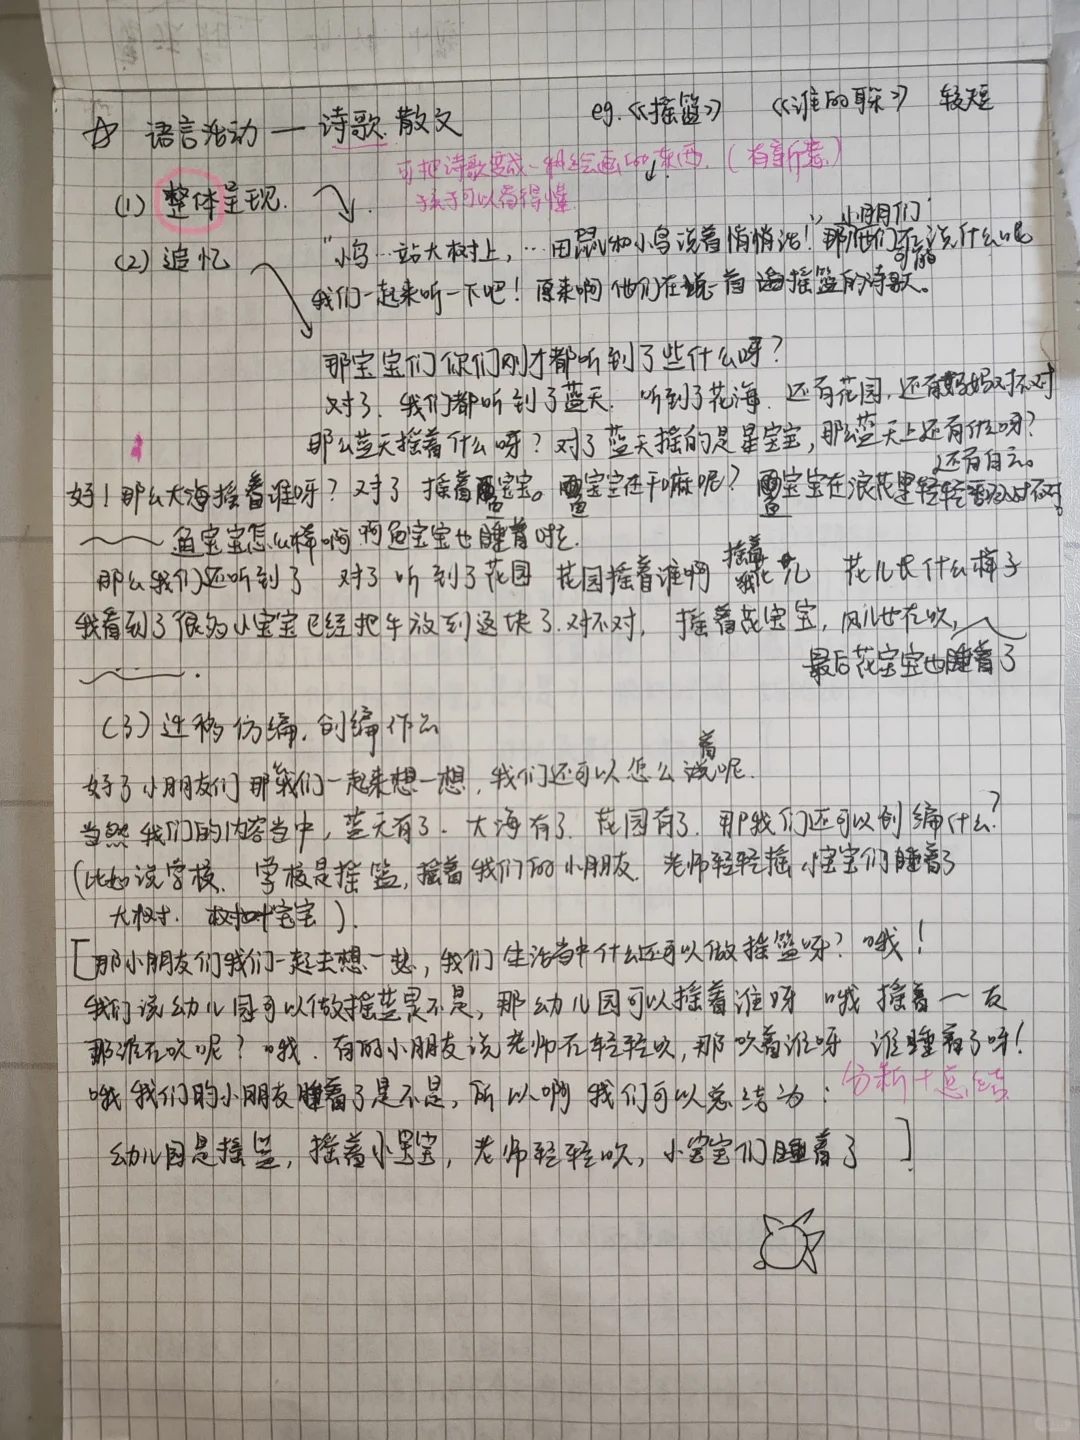 ☆ 语言活动 — 诗歌.散文 eg.《摇篮》 《谁的耳朵》 较短
可把诗歌变成一种绘画的东西.(有新意)
孩子可以看得懂.
(1) 整体呈现.
(2) 追忆
"小鸟…站大树上,…田鼠和小鸟说着悄悄话!" 小朋们 那他们可能在说什么呢
我们一起来听一下吧!原来啊他们在说着摇篮的诗歌。
那宝宝们你们刚才都听到了些什么呀?
对了.我们都听到了蓝天.听到了花海.还有花园,还有妈妈对不对
那么蓝天摇着什么呀?对了蓝天摇的是星宝宝,那么蓝天上还有什么呀?
还有白云。
好!那么大海摇着谁呀?对了 摇着鱼宝宝。鱼宝宝在干嘛呢?鱼宝宝在浪花里轻轻对不对
鱼宝宝怎么样啊 啊鱼宝宝也睡着啦.
那么我们还听到了 对了 听到了花园 花园摇着谁啊 摇着花儿 花儿长什么样子
我看到了很多小宝宝已经把手放到这块了.对不对, 摇着花宝宝,风儿也在吹,
最后花宝宝也睡着了
(3)迁移仿编.创编作品
好了小朋友们那我们一起来想一想,我们还可以怎么说着呢.
当然我们的内容当中,蓝天有了.大海有了.花园有了.那我们还可以创编什么?
(比如说学校. 学校是摇篮,摇着我们的小朋友.老师轻轻摇 小宝宝们睡着了
大树. 树叶宝宝).
[那小朋友们我们一起去想一想,我们生活当中什么还可以做摇篮呀?哦!
我们说幼儿园可以做摇篮是不是,那幼儿园可以摇着谁呀 哦 摇着一友
那谁在吹呢?哦.有的小朋友说老师在轻轻吹,那吹着谁呀 谁睡着了呀!
哦我们的小朋友睡着了是不是,所以啊 我们可以总结为: 分析+总结
幼儿园是摇篮,摇着小宝宝,老师轻轻吹,小宝宝们睡着了 ].